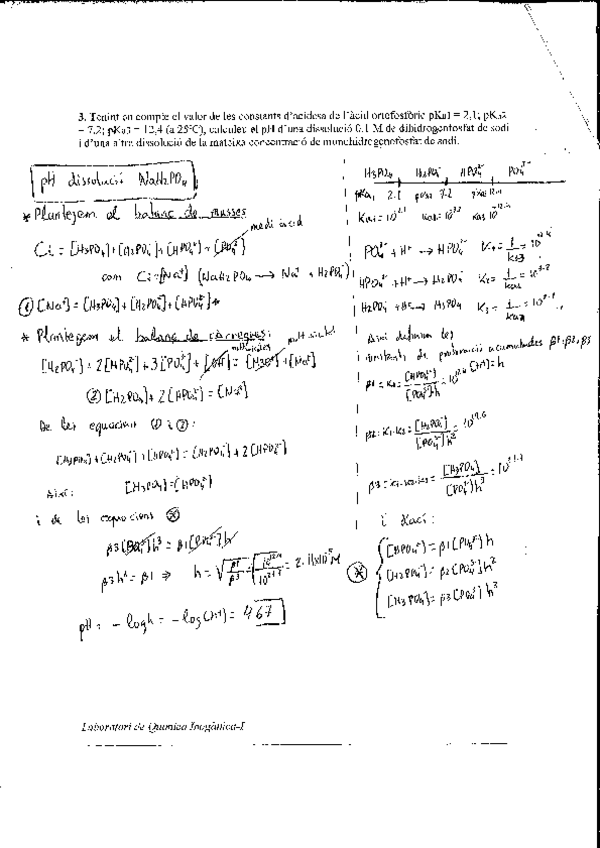 3. Tenint en compte el valor de les constants d'acidesa de l'àcid ortofosfòric pKa1 = 2,1; pKa2
= 7,2; pKa3 = 12,4 (a 25°C), calculeu el pH d'una dissolució 0,1 M de dihidrogenfosfat de sodi
i d'una altra dissolució de la mateixa concentració de monohidrogenofosfat de sodi.
pH dissolució NaH2PO4
* Plantejem el balanç de masses
medi àcid
Ci = [H3PO4]+[H2PO4-]+[HPO4 2-]+[PO4 3-]
com Ci=[Na+] (NaH2PO4 → Na+ + H2PO4-)
① [Na+] = [H3PO4]+[H2PO4-]+[HPO4 2-]
* Plantejem el balanç de càrregues:
[H2PO4-]+2[HPO4 2-]+3[PO4 3-]+[OH-] = [H3O+]+[Na+]
② [H2PO4-]+2[HPO4 2-] = [Na+]
De les equacions ① i ②:
[H3PO4]+[H2PO4-]+[HPO4 2-] = [H2PO4-]+2[HPO4 2-]
Així: [H3PO4]=[HPO4 2-]
i de les equacions ⊛
β3[PO4 3-]h³ = β1[PO4 3-]h
β3h² = β1 ⇒ h = √(β1/β3) = √(10^12.4/10^21.7) = 2.11x10^-5 M
pH = -log h = -log(H+) = 4.67
H3PO4 H2PO4- HPO4 2- PO4 3-
pKa1 2.1 pKa2 7.2 pKa3 12.4
Ka1=10^-2.1 Ka2=10^-7.2 Ka3 10^-12.4
PO4 3- + H+ → HPO4 2- K1 = 1/Ka3 = 10^12.4
HPO4 2- + H+ → H2PO4- K2 = 1/Ka2 = 10^7.2
H2PO4- + H+ → H3PO4 K3 = 1/Ka1 = 10^2.1
Així definim les
constants de protonació acumulades β1, β2, β3
[H+]=h
β1 = K1 = [HPO4 2-]/[PO4 3-]h = 10^12.4
β2 = K1·K2 = [H2PO4-]/[PO4 3-]h² = 10^19.6
β3 = K1·K2·K3 = [H3PO4]/[PO4 3-]h³ = 10^21.7
i d'ací:
⊛ [HPO4 2-] = β1[PO4 3-]h
[H2PO4-] = β2[PO4 3-]h²
[H3PO4] = β3[PO4 3-]h³
Laboratori de Química Inorgànica-I